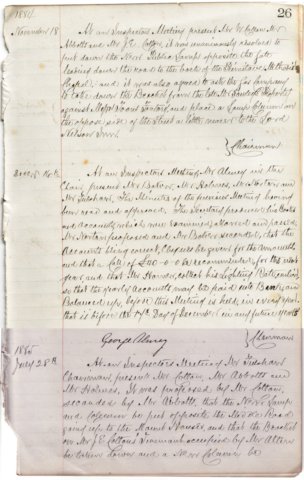 1884 26
November 18 At an Inspectors Meeting present Mr W Cotton Mr
Abbott and Mr J E Cotton, it was unanimously resolved to
put down the New Public Lamps opposite the Gate
leading down the road to the back of the Primitive Methodist
Chapel, and it was also agreed to ask the Gas Company
to take down the Bracket from the late Mr
against and place a Lamp Column on
the opposite side of the Street a little nearer to the Lord
Nelson Inn.
Chairman
At an Inspectors Meeting Mr Abney in the
Chair present Mr Baker, Mr Holmes, Mr Norton and
Mr Fulshaw, The Minutes of the previous Meeting having
been read and approved. The Secretary produced his Books
and Accounts which were examined &
Mr Norton proposed and Mr Baker seconded, that the
Accounts being correct, Cheques be given for the Amounts
and that a of £40-0-0 be recommended for the next
year and that Mr collect his Lighting Rate
so that the yearly Accounts may be paid into Bank and
Balanced up, before this Meeting is held, in every year
that is before the Day of December in any future year
George Abney Chairman
1885
July 28th At an Inspectors Meeting Mr Fulshaw
Chairman, present Mr Cotton, Mr Abbott and
Mr Holmes, It was proposed by Mr Cotton,
seconded by Mr Abbott, that the New Lamp
and Column be put opposite the Road
going up to the Houses, and that the Bracket
on Mr J E Cottons Tenement occupied by Mr
be taken down and a New Column be